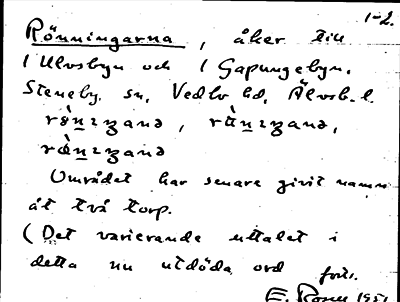 1-2.
Rönningarna, åker till
1 Ulvsbyn och 1 Gapungebyn.
Steneby sn, Vedbo hd, Älvsb. l.
Området har senare givit namn
åt två torp.
(Det varierande uttalet i
detta nu utdöda ord forts.
E. Rosen 1951